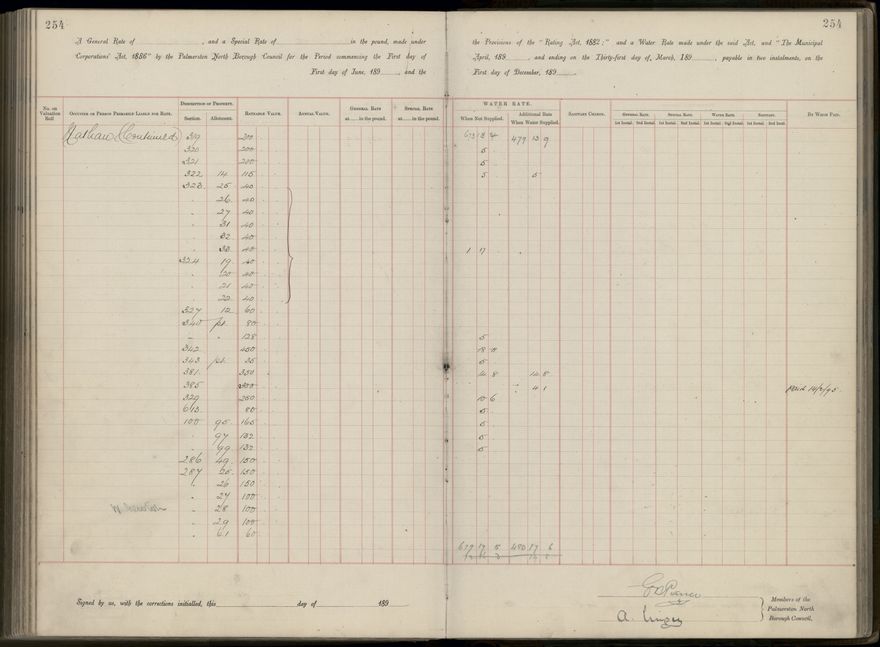 254
A General Rate of , and a Special Rate of in the pound, made under
Corporations' Act, 1886" by the Palmerston North Borough Council for the Period commencing the First day of
First day of June, 189 , and the
No. on Valuation Roll
Occupier or Person Primarily Liable for Rate.
Description of Property.
Section. Allotment.
Rateable Value.
Annual Value.
General Rate
at in the pound.
Special Rate
at in the pound.
Nathan Continued 319 200
320 200
321 200
322 14 115
323 25 40
" 26 40
" 27 40
" 31 40
" 32 40
" 33 40
324 19 40
" 20 40
" 21 40
" 22 40
327 12 60
340 pt. 80
" " 128
342 450
343 pt. 35
381 350
385 200
329 250
613 80
100 95 165
" 97 132
" 99 132
286 49 150
287 25 150
" 26 150
" 27 100
" 28 100
" 29 100
" 61 60
Signed by us, with the corrections initialled, this day of 189
254
the Provisions of the "Rating Act, 1882;" and a Water Rate made under the said Act, and "The Municipal
April, 189 , and ending on the Thirty-first day of, March, 189 , payable in two instalments, on the
First day of December, 189 .
WATER RATE.
When Not Supplied.
Additional Rate When Water Supplied.
Sanitary Charge.
General Rate.
1st Instal. 2nd Instal.
Special Rate.
1st Instal. 2nd Instal.
Water Rate.
1st Instal. 2nd Instal.
Sanitary.
1st Instal. 2nd Instal.
By Whom Paid.
673 18 4 479 13 9
5
5
5 5
1 17
5
18 9
5
14 8 14 8
4 1 Paid
10 6
5
5
5
5
677 17 5 480 17 6
Members of the
Palmerston North
Borough Council.